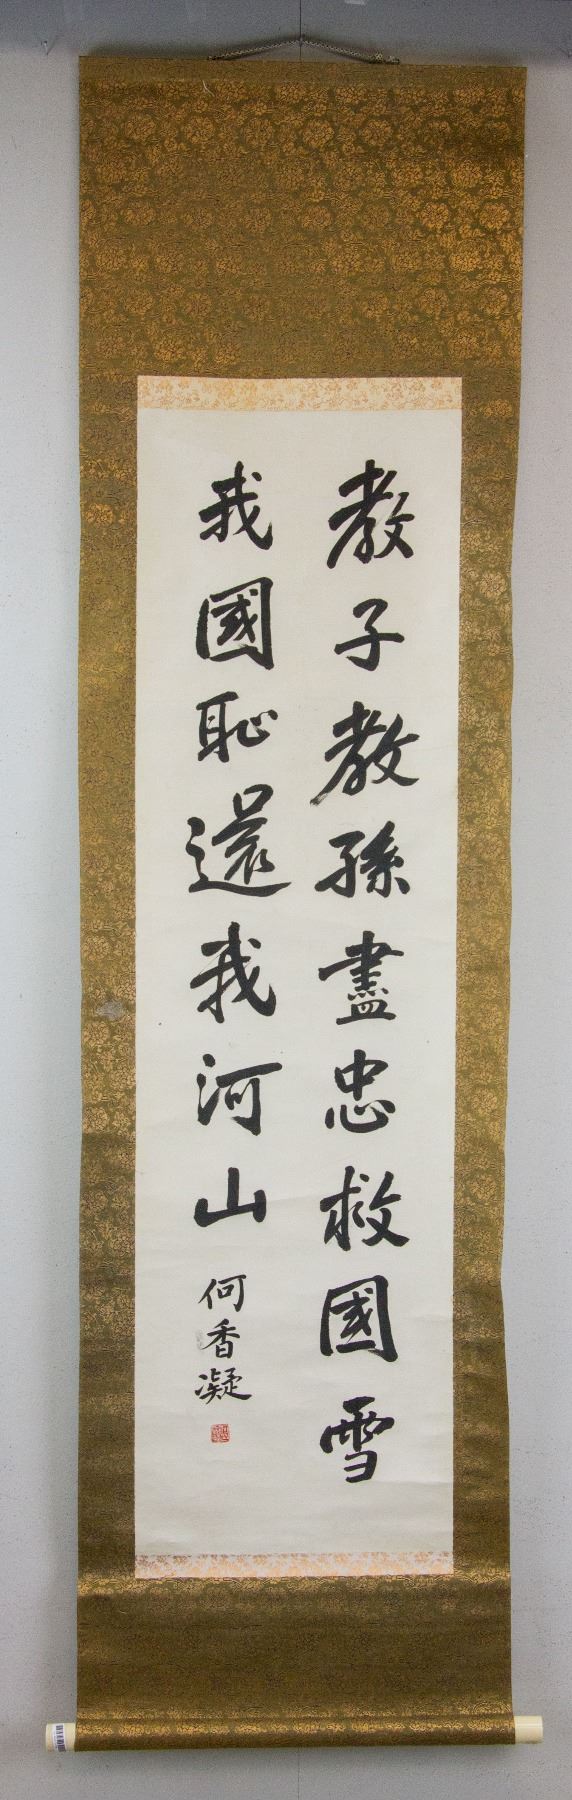 教子教孫盡忠救國雪
我國恥還我河山
何香凝